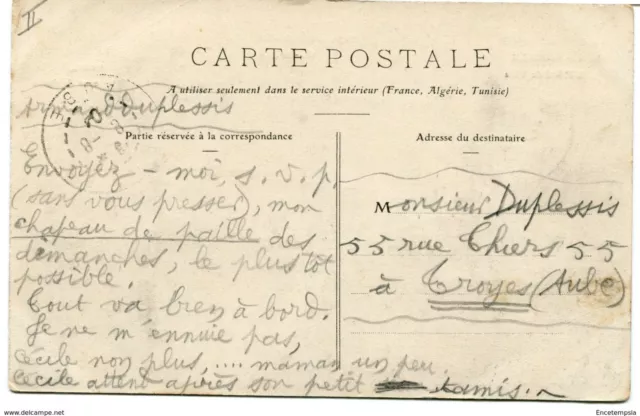 II
CARTE POSTALE
A utiliser seulement dans le service intérieur (France, Algérie, Tunisie)
Duplessis
Partie réservée à la correspondance
Envoyez-moi, s.v.p.
(sans vous presser), mon
chapeau de paille des
dimanches, le plus tôt
possible.
Tout va bien à bord.
Je ne m'ennuie pas,
Cécile non plus, .... maman un peu.
Cécile attend après son petit tamis.
Adresse du destinataire
Monsieur Duplessis
55 rue Thiers 55
à Troyes (Aube)
www.delcampe.net
Encetempsla